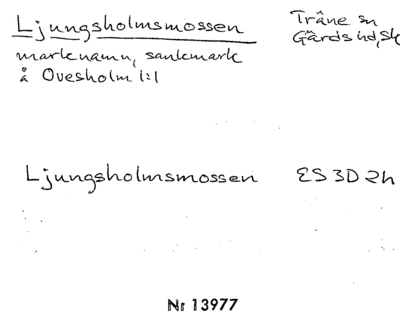 Ljungsholmsmossen
Träne sn
Gärds hd, Sk
marknamn, sankmark
å Ovesholm 1:1
Ljungsholmsmossen ES 3D 2h
Nr 13977